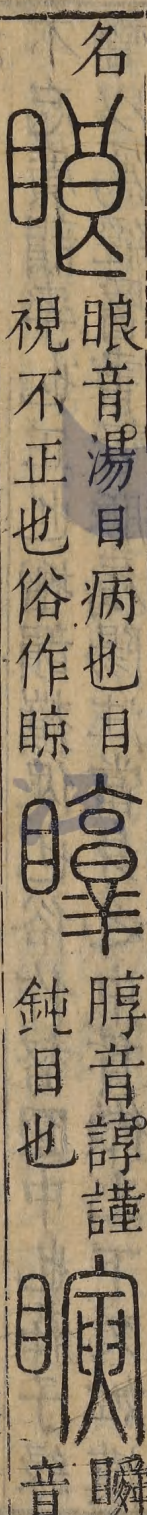 名
䀶音湯目病也目
視不正也俗作䁁
音諄謹
鈍目也
瞚
瞬
音